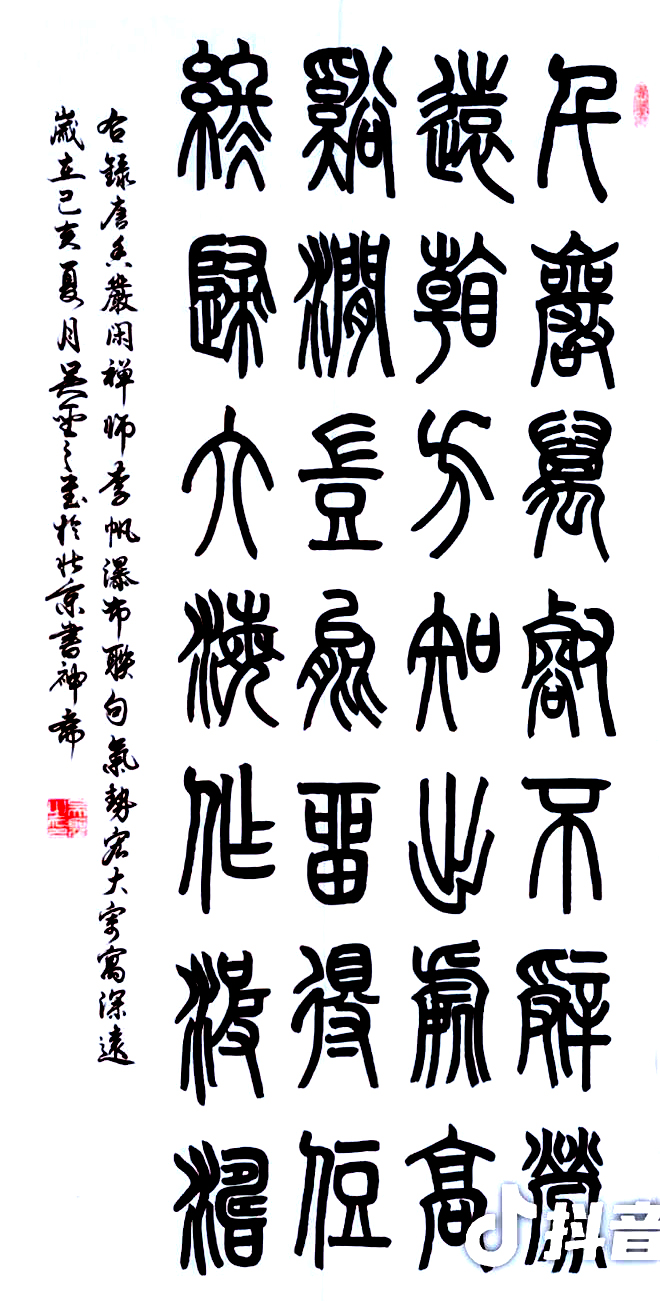 千巖萬壑不辭勞
遠看方知出處高
谿澗豈能留得住
終歸大海作波濤
右録唐香嚴閑禅師李忱瀑布聯句氣勢宏大寄寓深遠
歲在己亥夏月吴之書於北京書神齋
抖音